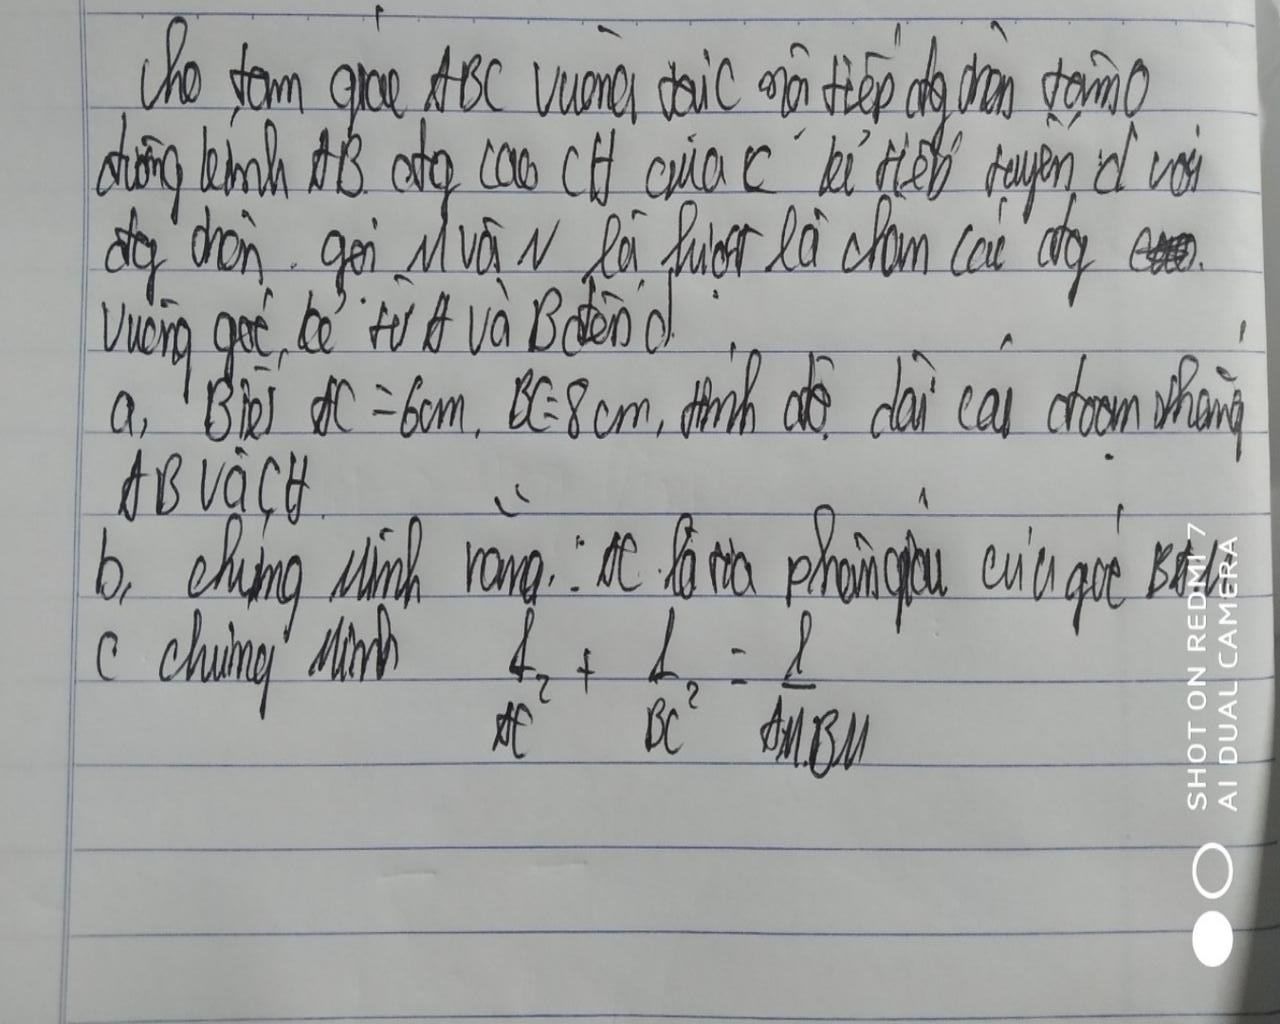 Cho tam giác ABC vuông tại C nội tiếp đg tròn tâm O
đường kính AB. đg cao CH của C kẻ tiếp tuyến d với
đg tròn. gọi M và N là lượt là chân các đg
vuông góc kẻ từ A và B đến d.
a, Biết AC = 6cm, BC = 8cm, tính độ dài các đoạn thẳng
AB và CH.
b, chứng minh rằng: AC là tia phân giác của góc BAM
c chứng minh 1/AC² + 1/BC² = 1/AM.BM
SHOT ON REDMI 7
AI DUAL CAMERA